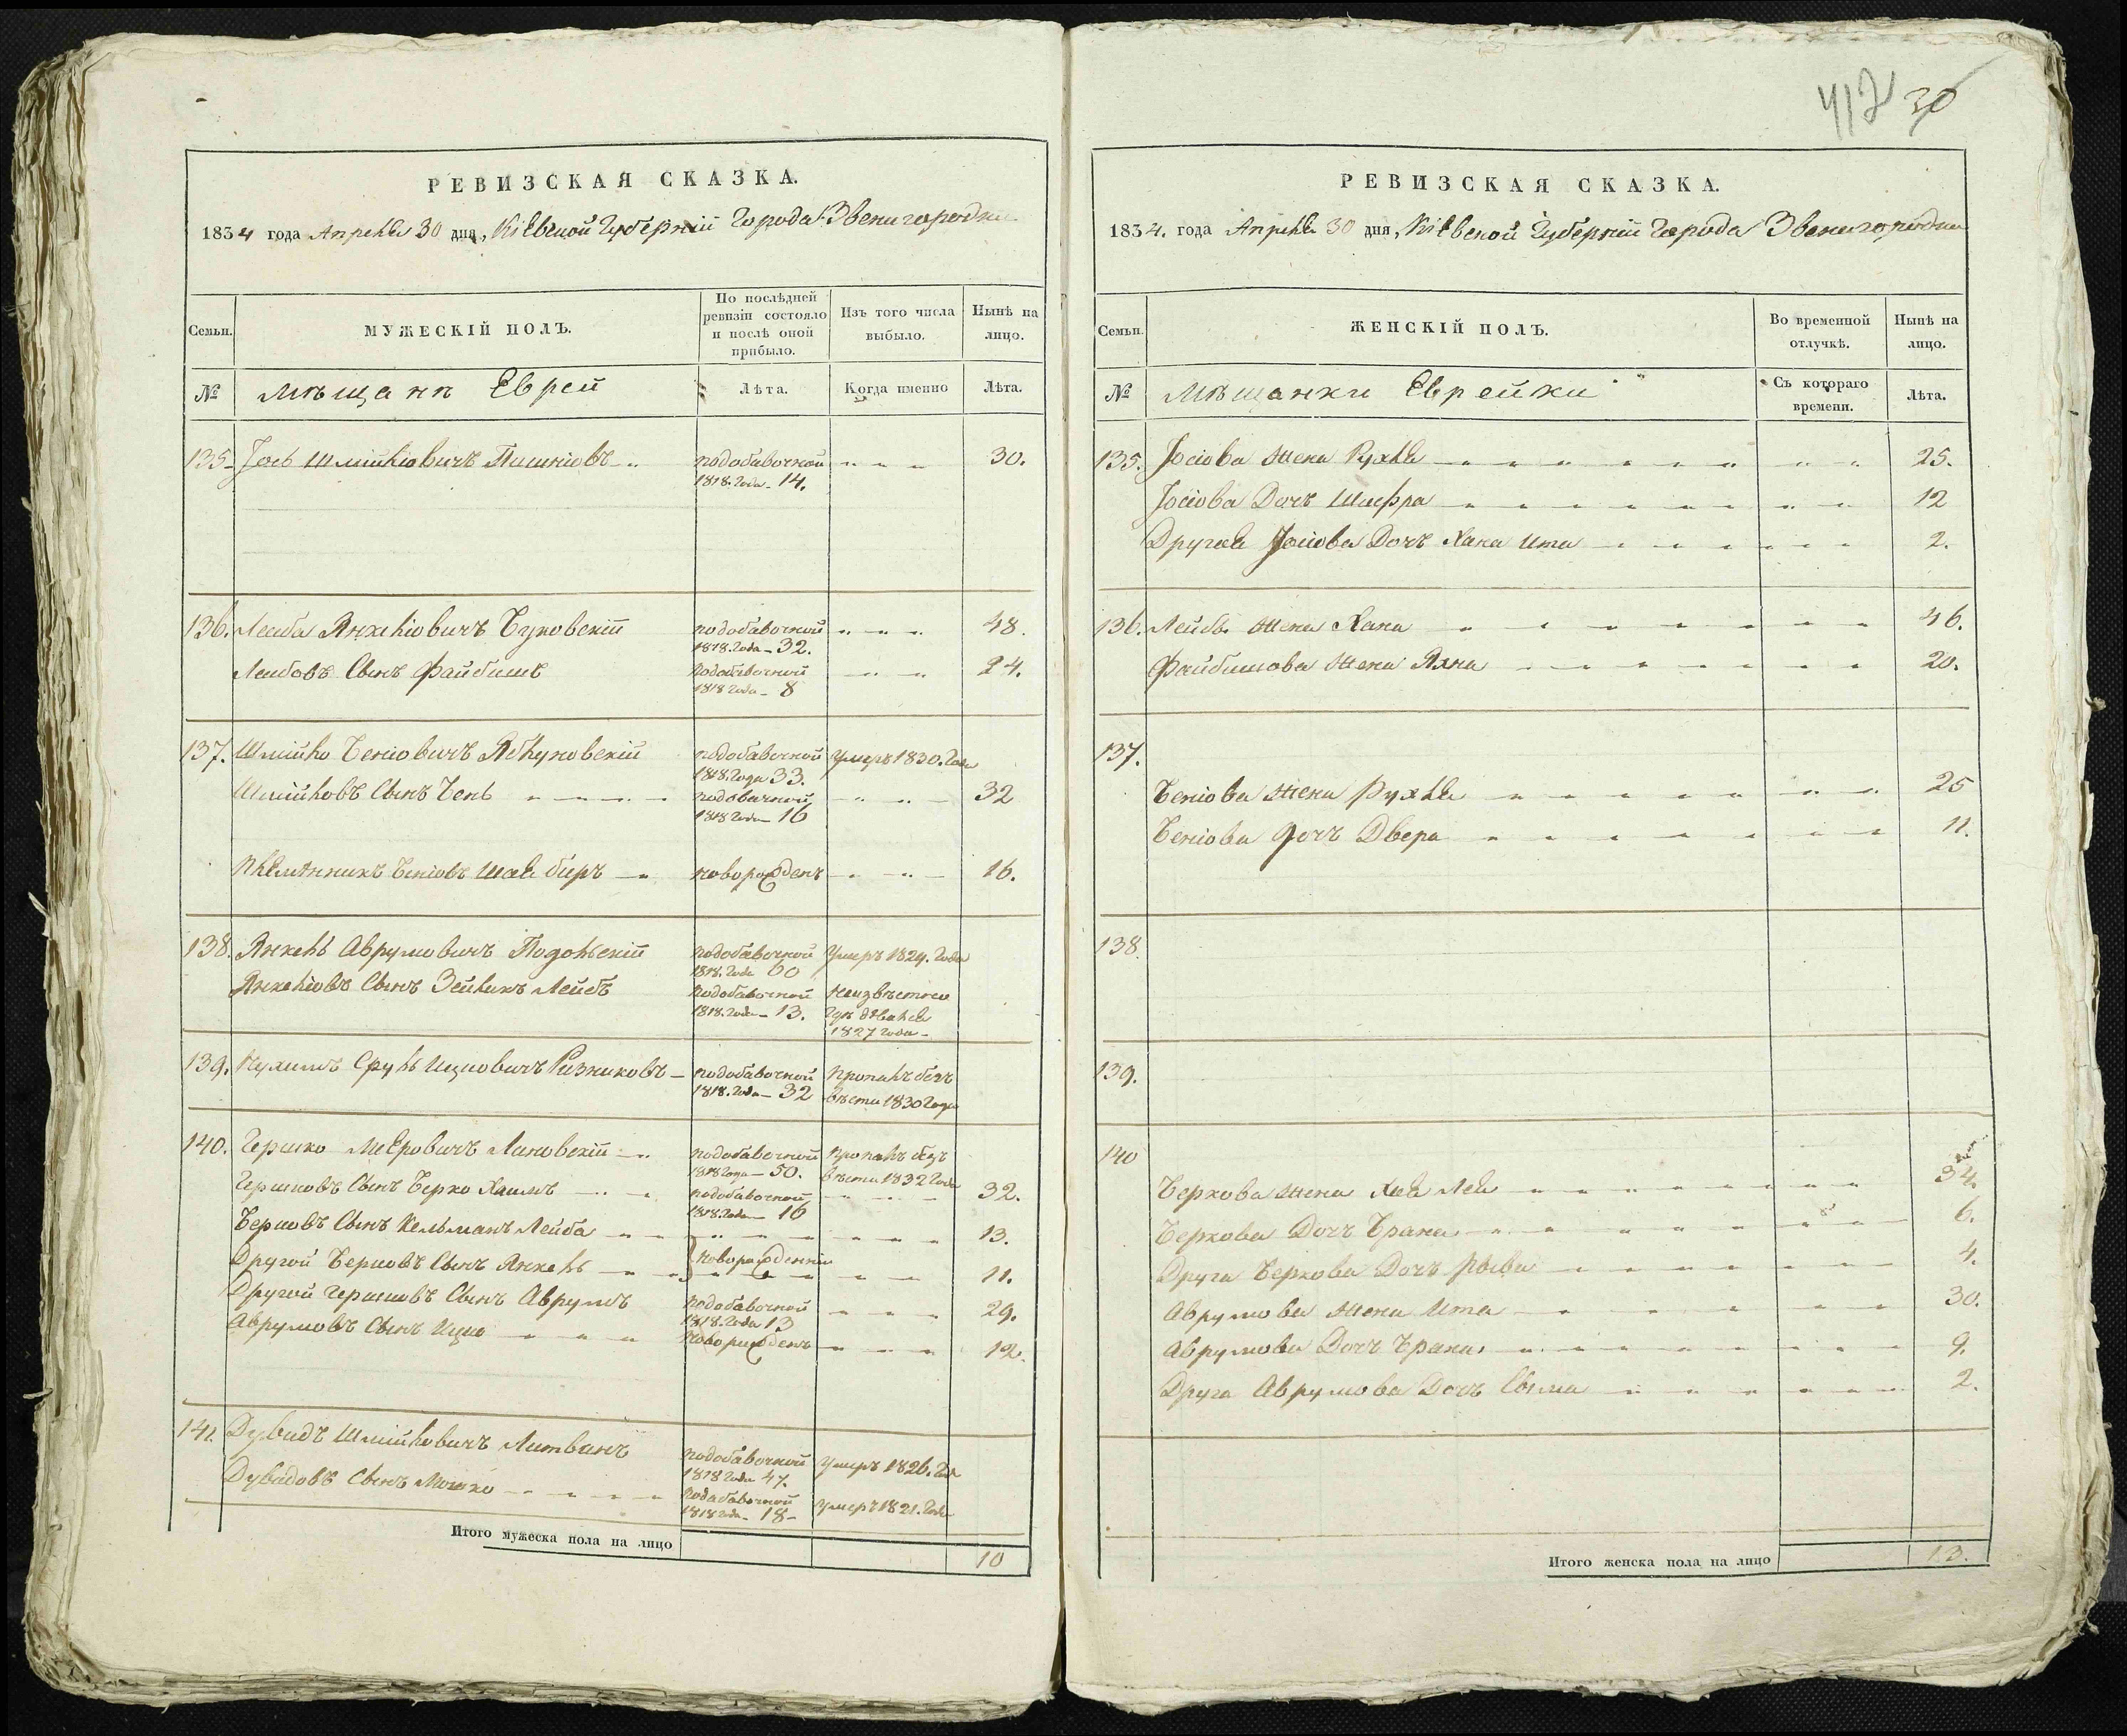 РЕВИЗСКАЯ СКАЗКА.
1834 года Апреля 30 дня, Кіевской Губерніи Города Звенигородки
Семьи.
МУЖЕСКІЙ ПОЛЪ.
По послѣдней ревизіи состояло и послѣ оной прибыло.
Изъ того числа выбыло.
Нынѣ на лицо.
№
Мѣщанѣ Еврей
Лѣта.
Когда именно
Лѣта.
135. Іось Шмійловичъ 30.
подобавочной
1818. Года 14.
136. Лейба Янкеліовичъ Буковскій подобавочной 48.
1818. Года 32.
Лейбовъ Сынъ Файбишъ подобавочной 24.
1818 Года 8
137. Шмійло Беніовичъ подобавочной Умеръ 1830. Года
1818. Года 33.
Шмійловъ Сынъ Бень 32
1818 Года 16
Племѣнникъ Беніовъ новорожденъ 16.
138. Янкель Аврумовичъ Подольскій подобавочной Умеръ 1829. Года
1818. Года 60
Янкеліовъ Сынъ Зейликъ Лейбъ подобавочной Неизвѣстно
1818. Года 13. гдѣ дѣвался
1827 Года
139. Нухимъ Сруль Ицковичъ Ризниковъ подобавочной Пропалъ безъ
1818. Года 32 вѣсти 1830 Года
140. Гершко Меєровичъ Линовскій подобавочной Пропалъ безъ
1818 Года 50. вѣсти 1832 Года
Гершковъ Сынъ Берко Хаимъ подобавочной 32.
1818. Года 16
Берковъ Сынъ Кельманъ Лейба 13.
Новорожденніи
Другой Берковъ Сынъ Янкель 11.
Другой Гершковъ Сынъ Аврумъ подобавочной 29.
1818. Года 13
Аврумовъ Сынъ Ицко Новорожденъ 12.
141. Дувидъ Шмійловичъ Литвинъ подобавочной Умеръ 1826. Года
1818 Года 47.
Дувидовъ Сынъ Мошко подобавочной умеръ 1821. Года
1818 Года 18
Итого мужеска пола на лицо 10
412 30
РЕВИЗСКАЯ СКАЗКА.
1834. года Апреля 30 дня, Кіевской Губерніи Города Звенигородки
Семьи.
ЖЕНСКІЙ ПОЛЪ.
Во временной отлучкѣ.
Нынѣ на лицо.
№
Мѣщанки Еврейки
Съ котораго времени.
Лѣта.
135. Іосіова Жена Рухля 25.
Іосіова Дочь Шифра 12
Другая Іосіова Дочъ Хана Ита 2.
136. Лейбы Жена Хана 46.
Файбишова Жена Яхна 20.
137.
Беніова Жена Рухля 25
Беніова Дочь Двера 11.
138.
139.
140
Беркова Жена Хая Лея 34.
Беркова Дочь Брана 6.
Друга Беркова Дочъ Рыва 4.
Аврумова Жена Ита 30.
Аврумова Дочъ Брана 9.
Друга Аврумова Дочъ Сыма 2.
Итого женска пола на лицо 13.